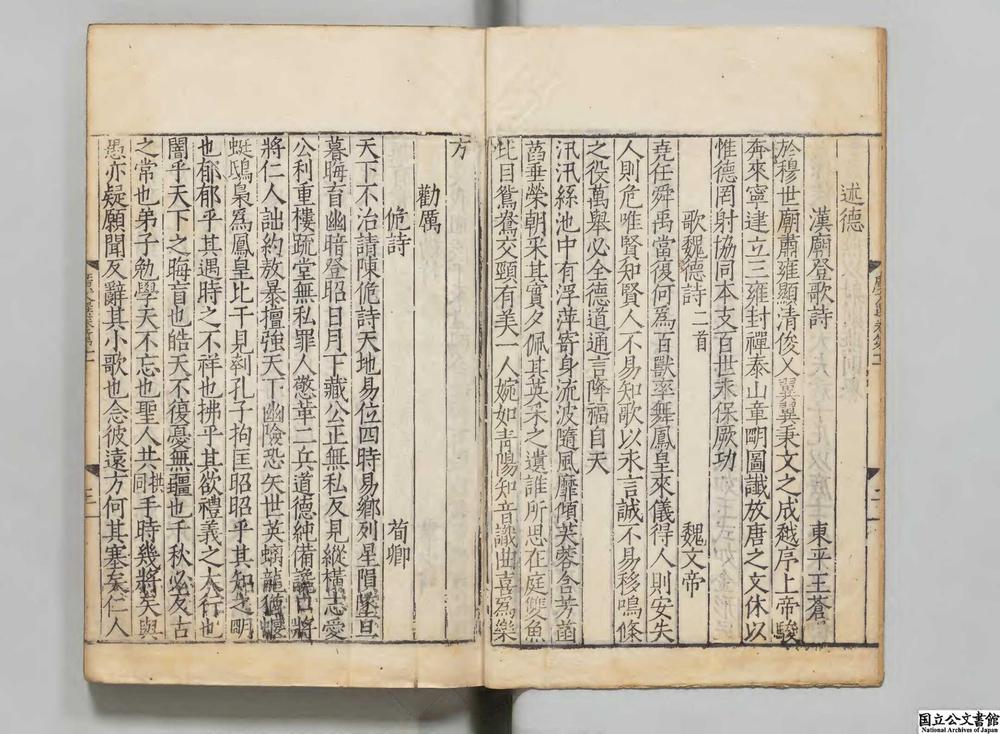 述德
漢廟登歌詩 東平王蒼
於穆世廟肅雍顯清俊乂翼翼秉文之成越序上帝駿
奔來寧建立三雍封禪泰山章明圖讖放唐之文休以
惟德罔射協同本支百世永保厥功
歌魏德詩二首 魏文帝
堯任舜禹當復何為百獸率舞鳳皇來儀得人則安失
人則危唯賢知賢人不易知歌以永言誠不易移鳴條
之役萬舉必全德道通言降福自天
汎汎綠池中有浮萍寄身流波隨風靡傾芙蓉含芳菡
萏垂榮朝采其實夕佩其英采之遺誰所思在庭雙魚
比目鴛鴦交頸有美一人婉如青陽知音識曲喜為樂
方
勸厲
佹詩 荀卿
天下不治請陳佹詩天地易位四時易鄉列星隕墜旦
暮晦盲幽暗登昭日月下藏公正無私反見縱橫志愛
公利重樓疏堂無私罪人憼革二兵道德純備讒口將
將仁人詘約敖暴擅強天下幽險恐失世英螭龍為蝘
蜓鴟梟為鳳皇比干見刳孔子拘匡昭昭乎其知之明
也郁郁乎其遇時之不祥也拂乎其欲禮義之大行也
闇乎天下之晦盲也皓天不復憂無疆也千秋必反古
之常也弟子勉學天不忘也聖人共拱同手時幾將矣與
愚亦疑願聞反辭其小歌也念彼遠方何其塞矣仁人
国立公文書館
National Archives of Japan